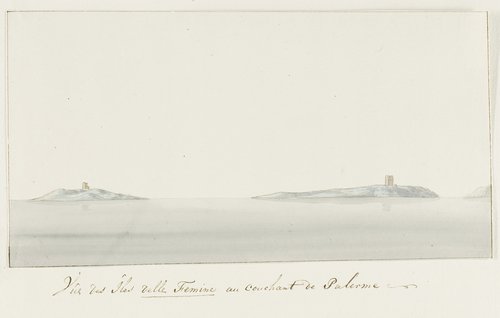 Vüe des Îles delle Femine au couchant de Palerme